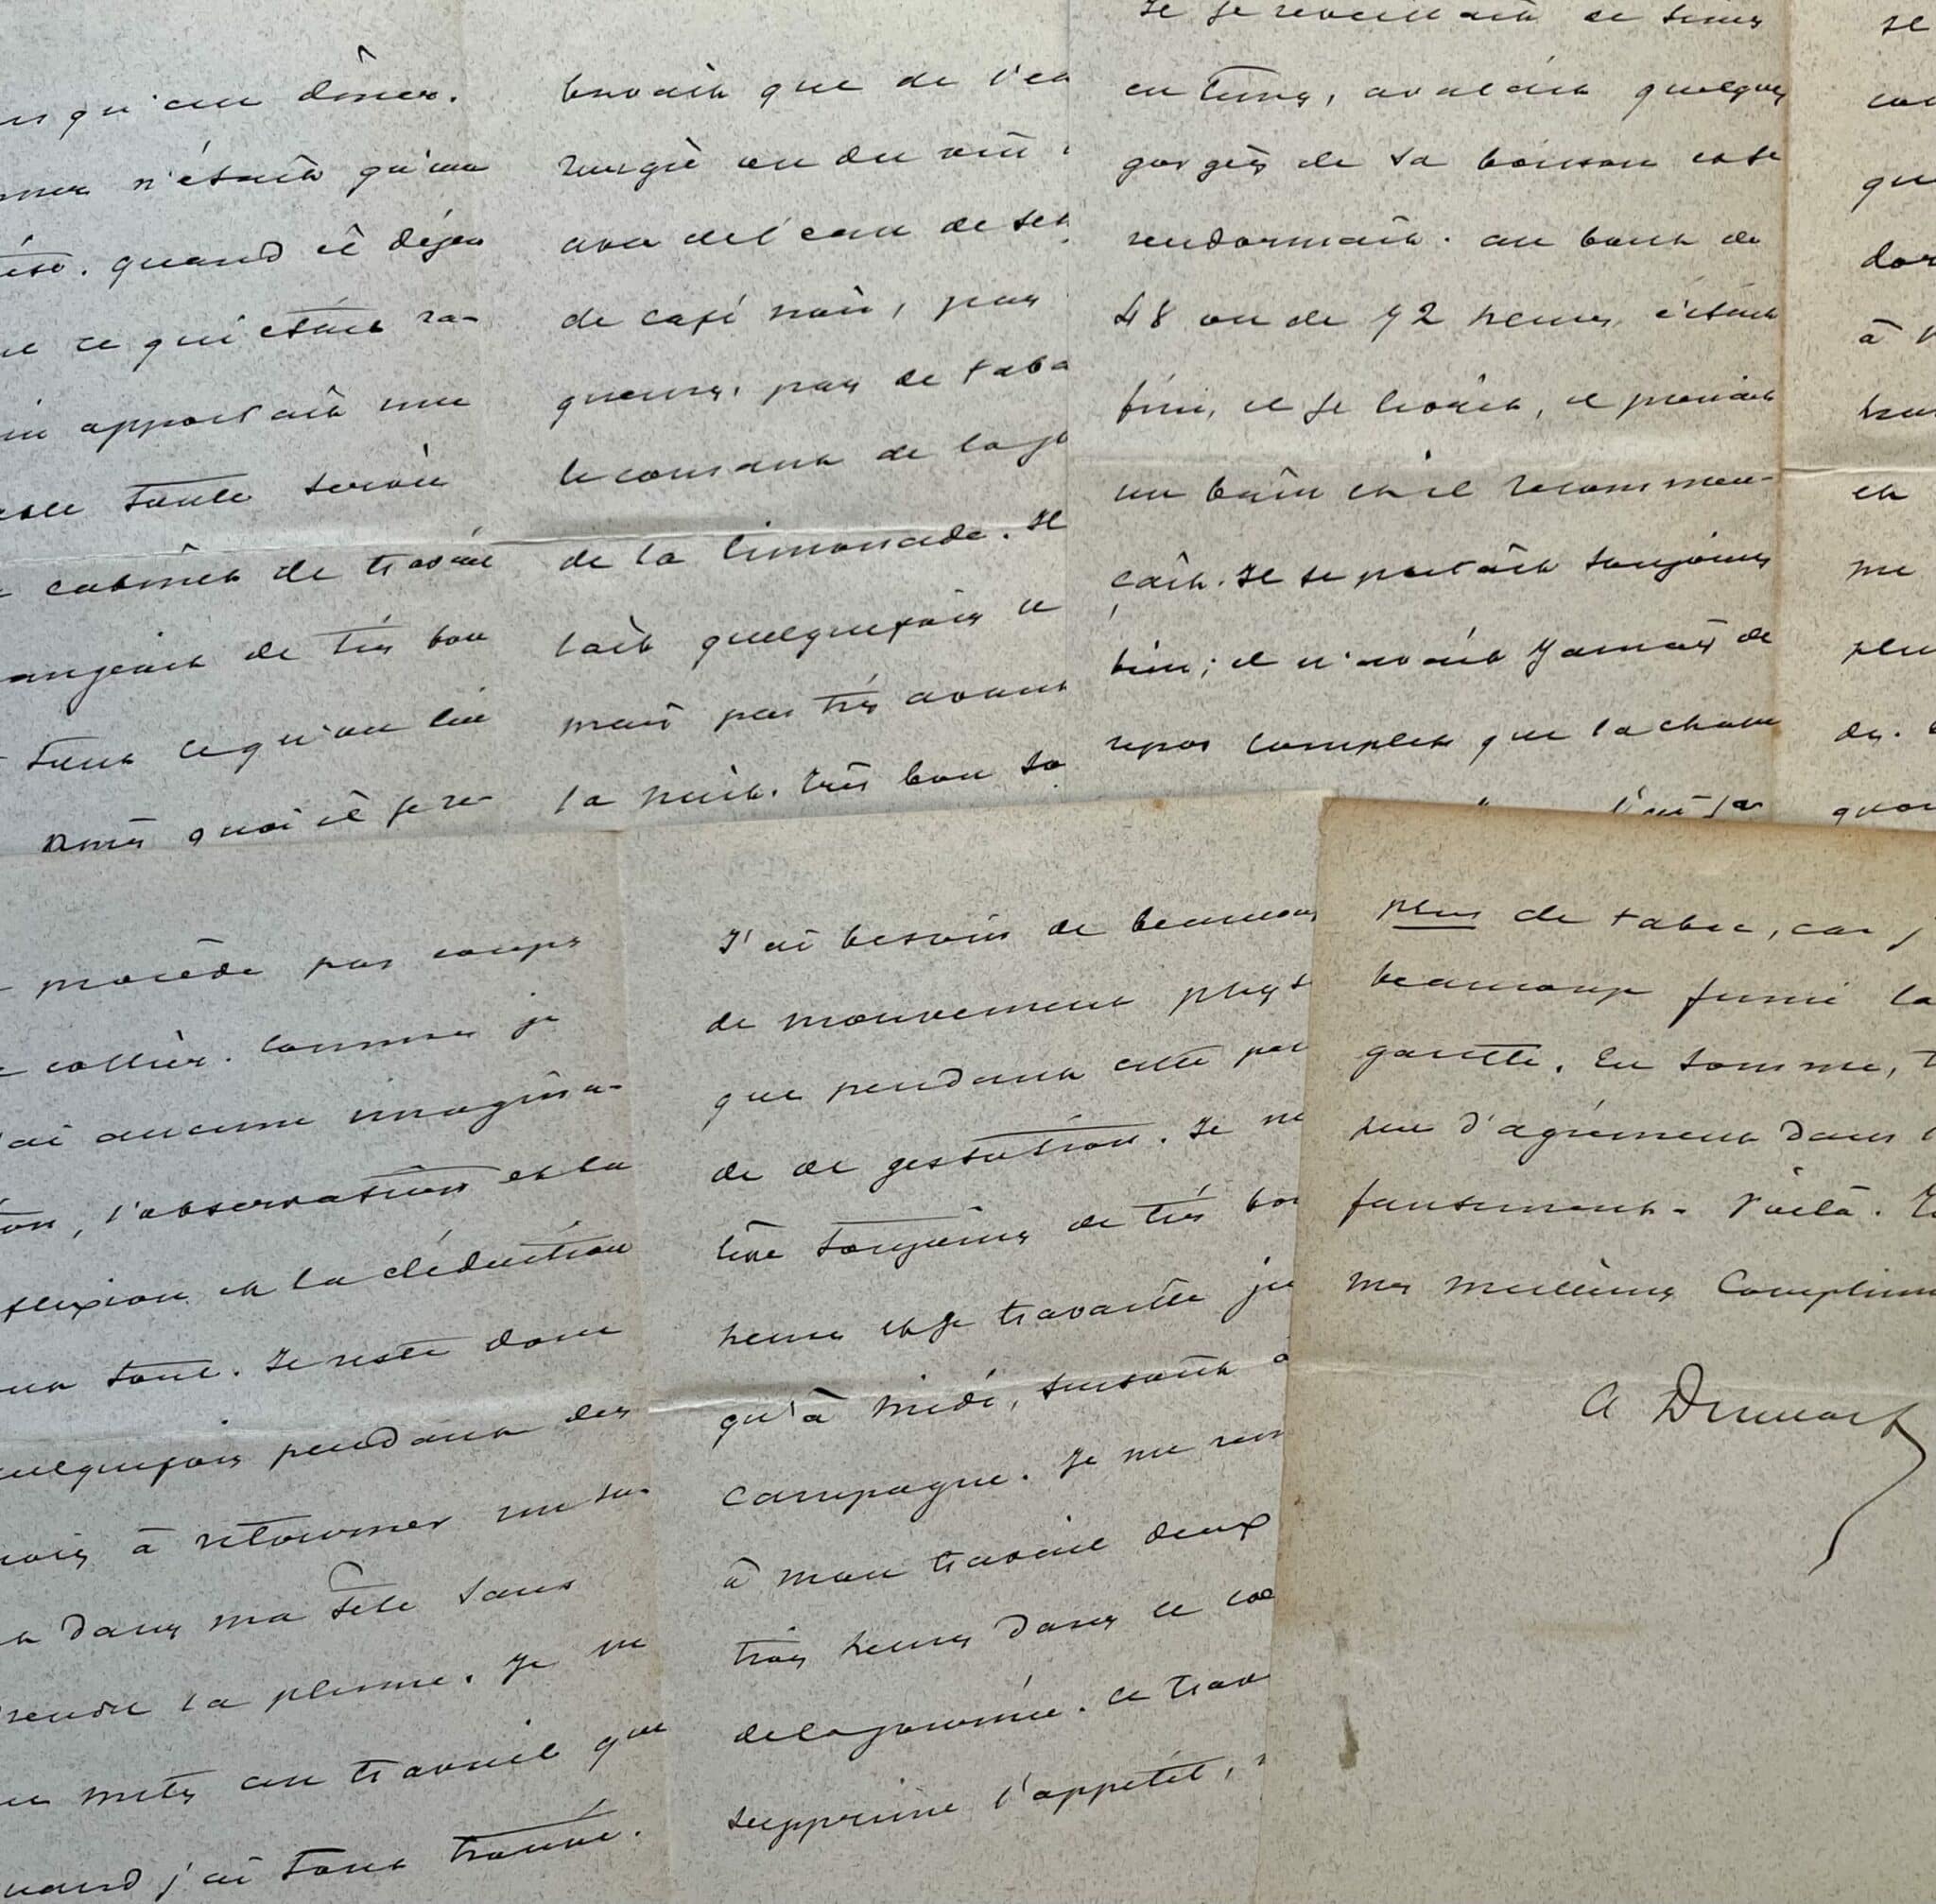 qu'au dîner.
n'était qu'un
quand il déjeu
ce qui était ra-
apportait une
toute servie
cabinet de travail
angeait de très bon
tout ce qu'on lui
Après quoi il se re-
buvait que de l'ea
rougie ou du vin
avec de l'eau de sel
de café noir, pas
queurs, pas de taba
le courant de la jo
de la limonade. Il
lait quelquefois le
mais pas très avant
la nuit. Très bon so
Il se réveillait de temps
en temps, avalait quelques
gorgées de sa boisson et se
rendormait. au bout de
48 ou de 72 heures, c'était
fini, il se levait, il prenait
un bain et il recommen-
çait. Il se portait toujours
bien; il n'avait jamais de
repos complet que la chasse
se
qu
dor
à
et
me
plu
de.
quo
procède par coups
collier. Comme je
'ai aucune imagina-
ion, l'observation et la
flexion et la déduction
font tout. Je reste donc
uelquefois pendant des
mois à retourner un su-
dans ma tête sans
rendre la plume. Je ne
me mets au travail que
uand j'ai tout trouvé.
J'ai besoin de beaucoup
de mouvement physi
que pendant cette pér
de de gestation. Je me
lève toujours de très bon
heure et je travaille jus
qu'à midi, surtout à
campagne. Je me rem
à mon travail deux
trois heures dans le cou
de la journée. Ce trav
supprime l'appétit,
plus de tabac, car j
beaucoup fumé la
garette. En somme, t
peu d'agrément dans
fantement. Voilà.
mes meilleurs Complim
A Dumas f